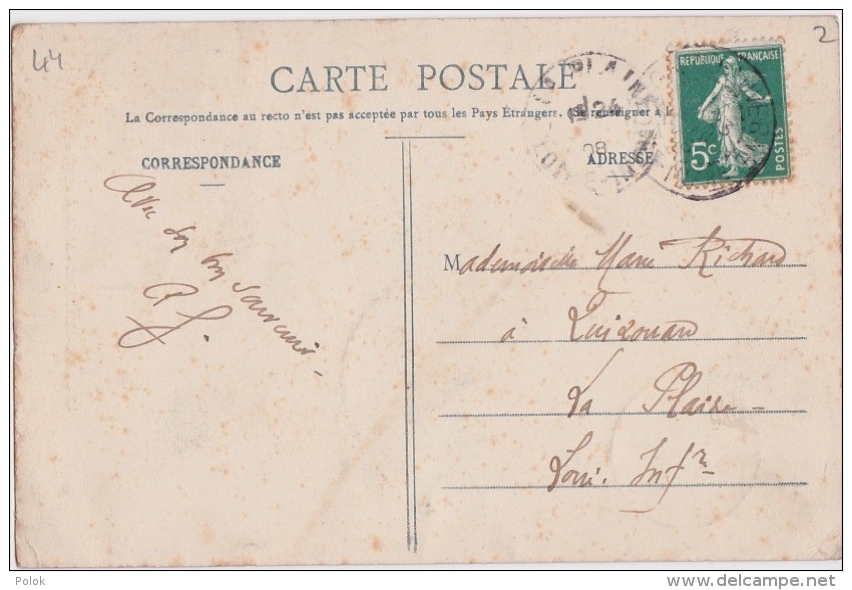 44
2
CARTE POSTALE
La Correspondance au recto n'est pas acceptée par tous les Pays Étrangers. (Se renseigner à l
CORRESPONDANCE
ADRESSE
REPUBLIQUE FRANÇAISE
5c
POSTES
LA PLAINE
24
08
LOIRE INF
Avec son bon souvenir
Mademoiselle Marie Richard
à
La Plaine
Loire Infre
Polok
www.delcampe.net